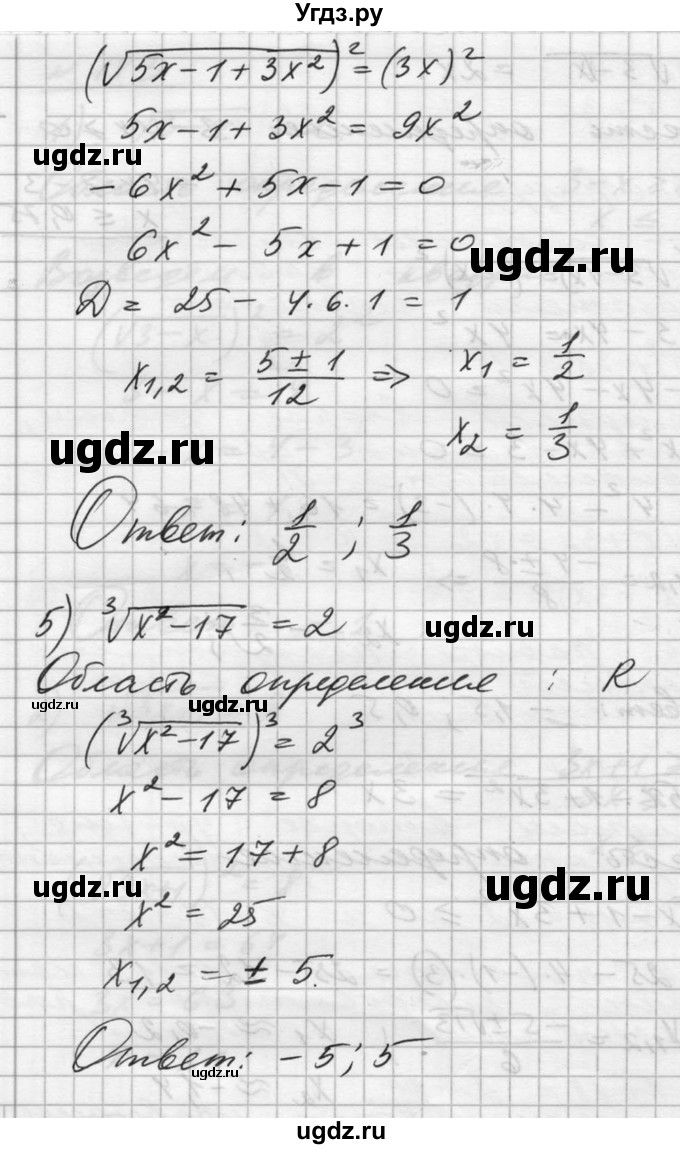 Угдз.ру
(√(5x - 1 + 3x²))² = (3x)²
5x - 1 + 3x² = 9x²
ugdz.ru
- 6x² + 5x - 1 = 0
6x² - 5x + 1 = 0
ugdz.ru
D = 25 - 4·6·1 = 1
x₁,₂ = (5 ± 1)/12 => x₁ = 1/2
x₂ = 1/3
ugdz.ru
Ответ: 1/2 ; 1/3
5) ³√(x² - 17) = 2
ugdz.ru
Область определения : R
ugdz.ru ugdz.ru
(³√(x² - 17))³ = 2³
x² - 17 = 8
x² = 17 + 8
ugdz.ru ugdz.ru
x² = 25
x₁,₂ = ± 5.
Ответ: - 5 ; 5
ugdz.ru
ugdz.ru